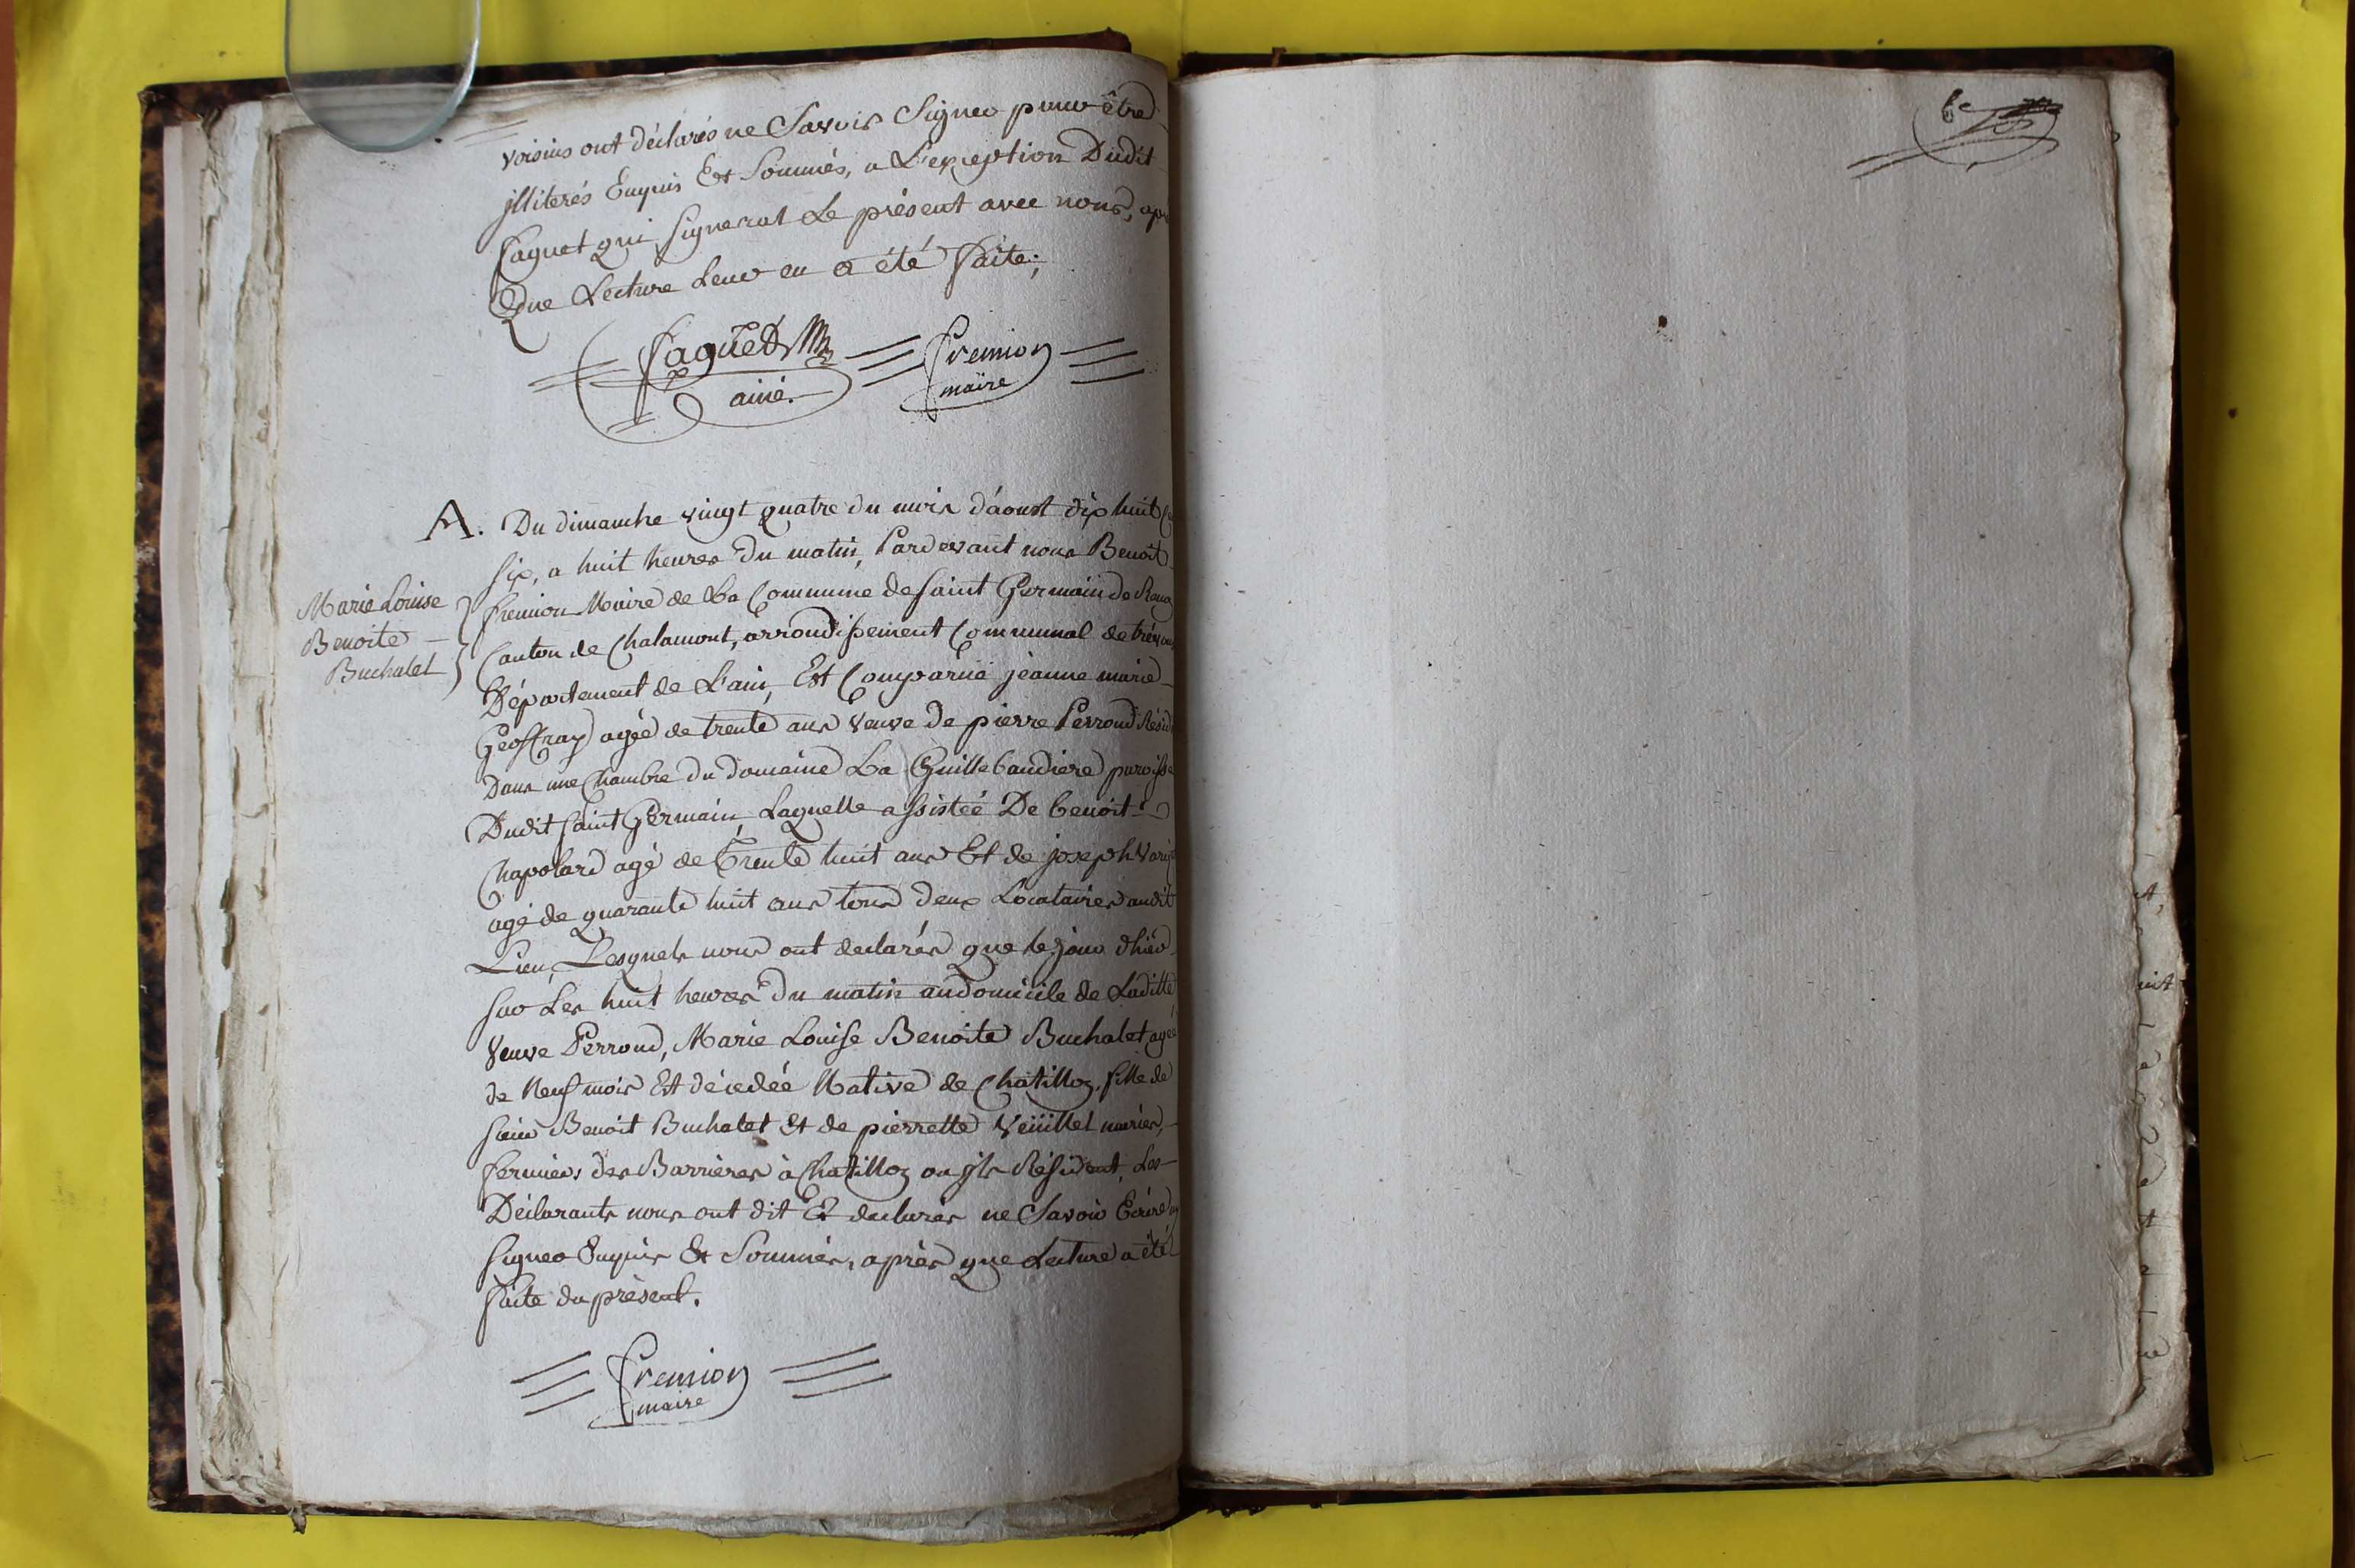 voisins ont déclarés ne Savoir Signer pour être
jlliterés Enquis Et Sommés, a L'exception Dudit
faguet qui Signerat Le présent avec nous,
Que Lecture Leur en a été faite;
faguet
ainé.
fremion
maire
A. Du dimanche vingt quatre du mois d'aoust dix huit
Six, a huit heures du matin, Pardevant nous Benoit
Marie Louise
Benoite
Buchalet
fremion Maire de La Commune de Saint Germain de
Canton de Chalamont, arrondissement Communal de
Département de L'ain, Est Comparüe jeanne marie
Geoffray ageé de trente ans Veuve de pierre Perroud
Dans une Chambre du domaine La Guillebaudiere paroisse
Dudit Saint Germain, Laquelle assisteé De benoit
Chapolard agé de Trente huit ans Et de joseph
agé de quarante huit ans tous deux Locataires audit
Lieu, Lesquels nous ont declarés que le jour d'hier
sur Les huit heures du matin au domicile de Laditte
Veuve Perroud, Marie Louise Benoite Buchalet ageé
de Neuf mois Est décedéé Native de Chatillon, fille de
sieur Benoit Buchalet Et de pierrette Veüillet mariés,
fermiers des Barrières à Chatillon ou jls Résident, Les
Déclarants nous ont dit Et declarés ne Savoir Ecrire
Signer Enquis Et Sommés, après que Lecture a été
faite du présent.
fremion
maire
6e